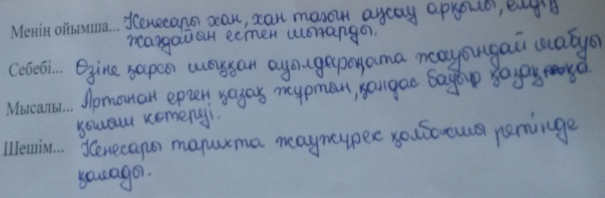 Менің ойымша... Кенесары хан, хан тағын аңсау арқылы, елдің
жағдайын естен шығарды.
Себебі... Өзіне қарсы шыққан ауылдарға қата жауындай шабуы
Мысалы... Артынан ерген қазақ жұртын, қандас бауыр қазаққа
қылыш көтеруі.
Шешім... Кенесары тарихта жаужүрек қолбасшы ретінде
қалады.